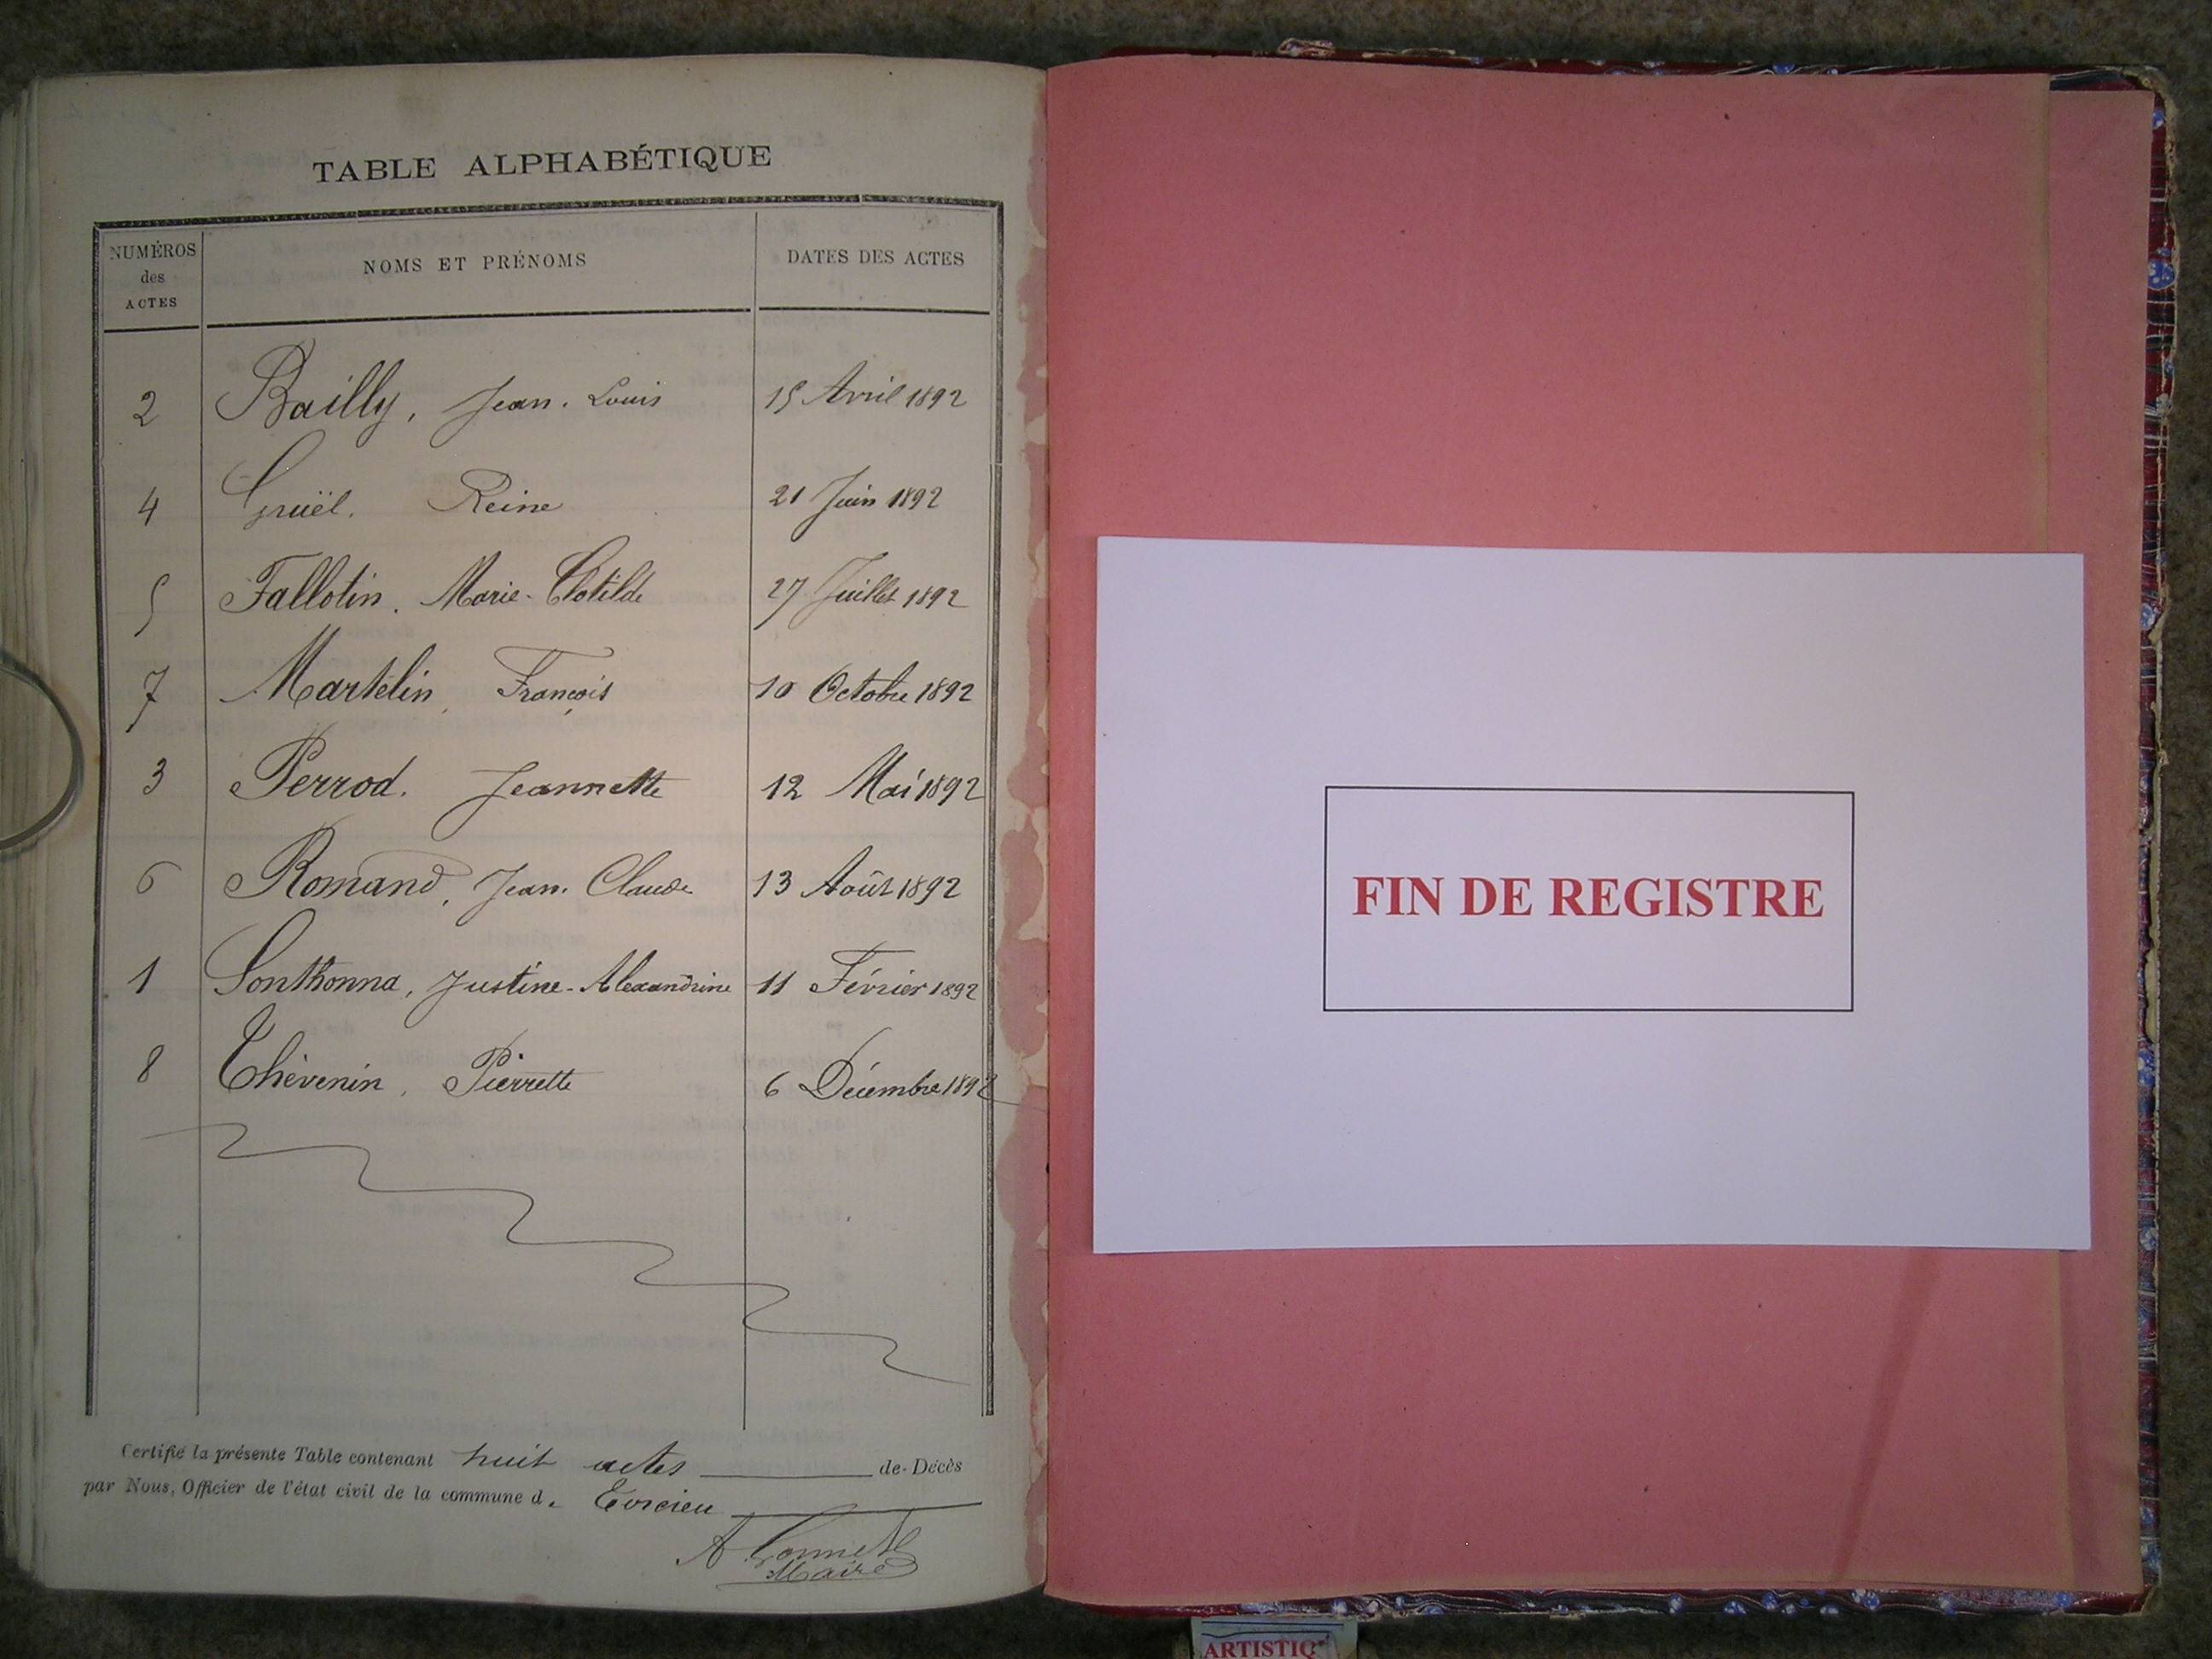 TABLE ALPHABÉTIQUE
NUMÉROS des ACTES NOMS ET PRÉNOMS DATES DES ACTES
2 Bailly, Jean-Louis 15 Avril 1892
4 Gruël. Reine 21 Juin 1892
5 Fallotin. Marie-Clotilde 27 Juillet 1892
7 Martelin, François 10 Octobre 1892
3 Perrod. Jeannette 12 Mai 1892
6 Romand, Jean-Claude 13 Août 1892
1 Sonthonna, Justine-Alexandrine 11 Février 1892
8 Thévenin, Pierrette 6 Décembre 1892
Certifié la présente Table contenant huit actes de Décès
par Nous, Officier de l'état civil de la commune d
A
Maire
FIN DE REGISTRE
ARTISTIQ